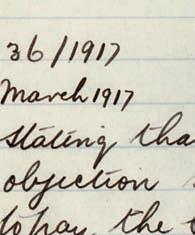 36/1917
March 1917
stating tha
objection
to pay the